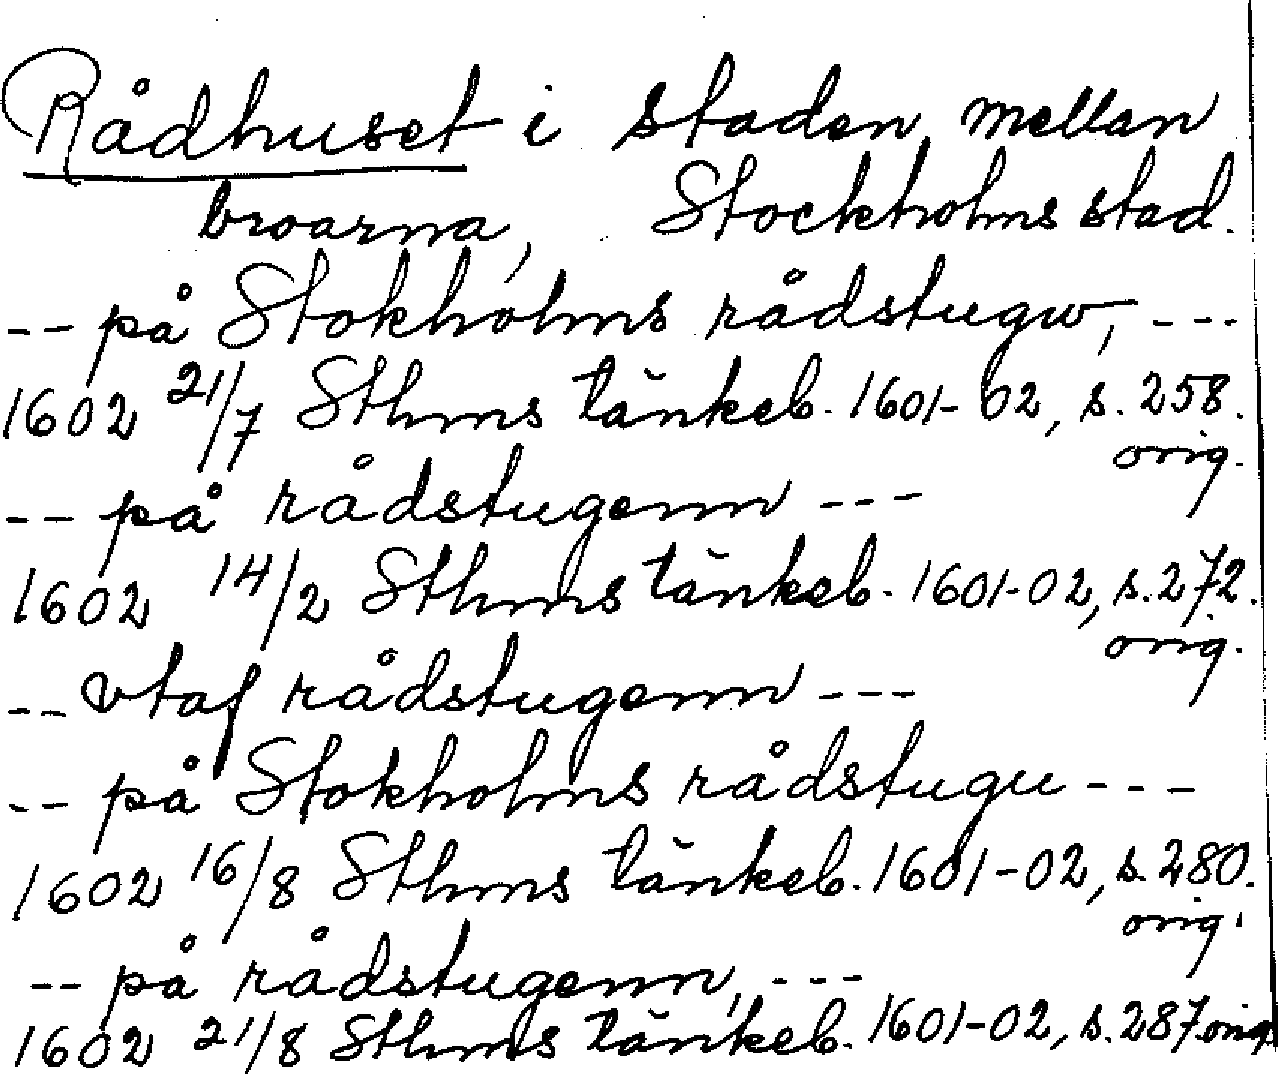 Rådhuset i staden mellan
broarna, Stockholms stad.
-- på Stokholms rådstugw, ---
1602 21/7 Sthms tänkeb. 1601-02, s. 258.
orig.
-- på rådstugenn ---
1602 14/2 Sthms tänkeb. 1601-02, s. 272.
orig.
-- vtaf rådstugenn ---
-- på Stokholms rådstugu ---
1602 16/8 Sthms tänkeb. 1601-02, s. 280.
orig.
-- på rådstugenn, ---
1602 21/8 Sthms tänkeb. 1601-02, s. 287. orig.